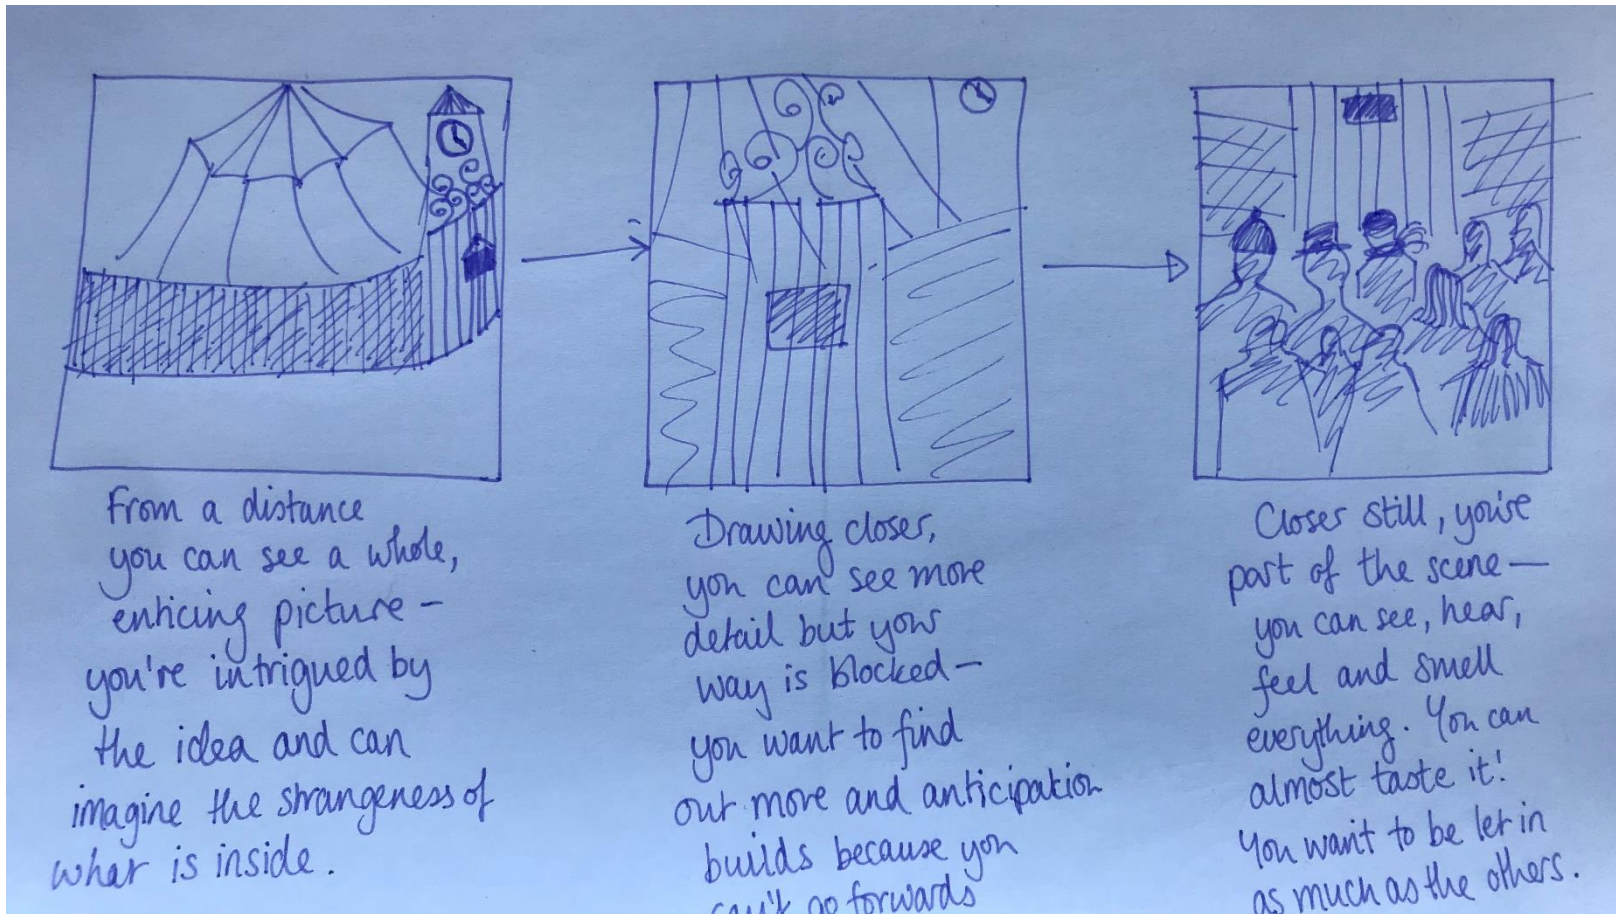 From a distance
you can see a whole,
enticing picture –
you're intrigued by
the idea and can
imagine the strangeness of
what is inside.
Drawing closer,
you can see more
detail but your
way is blocked –
you want to find
out more and anticipation
builds because you
can't go forwards
Closer still, you're
part of the scene –
you can see, hear,
feel and smell
everything. You can
almost taste it!
You want to be let in
as much as the others.